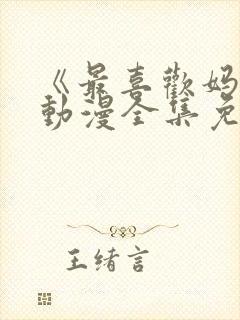 《最喜歡妈
動漫全集免
王绪言